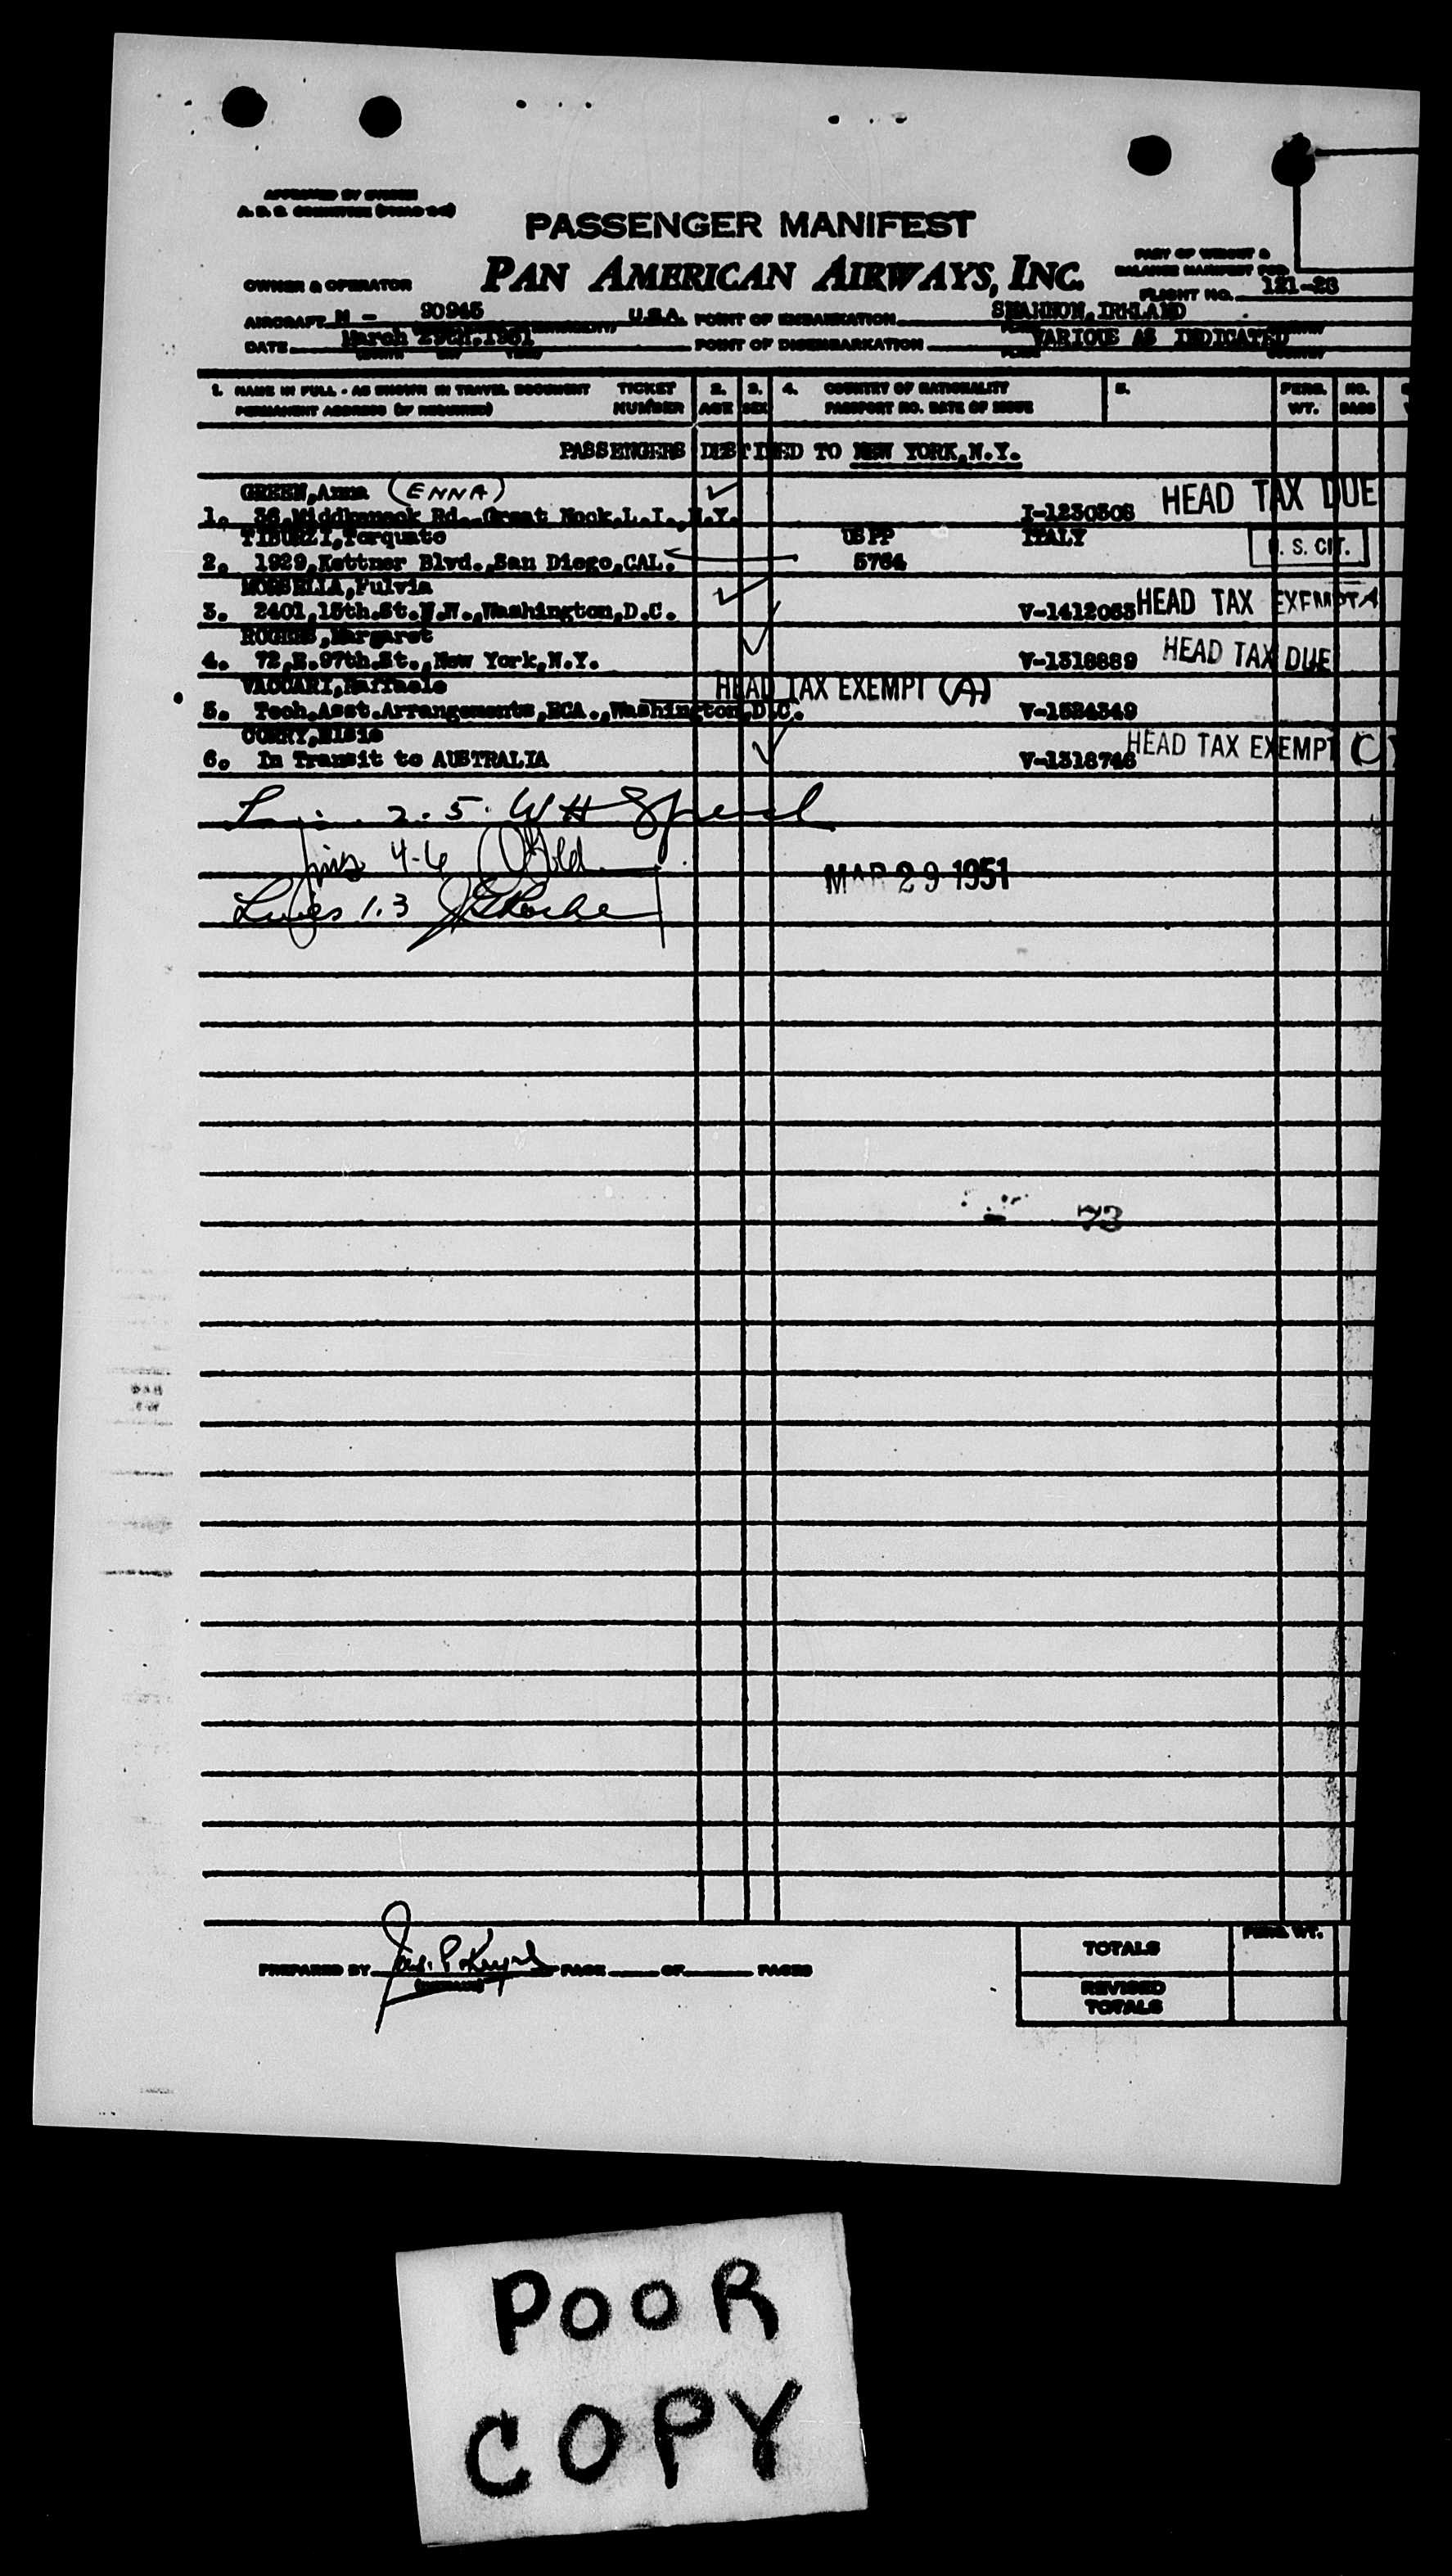 APPROVED BY
PASSENGER MANIFEST
PAN AMERICAN AIRWAYS, INC.
OWNER & OPERATOR
PART OF WEIGHT &
BALANCE MANIFEST FOR
FLIGHT NO. 121-23
AIRCRAFT N - 90945 U.S.A. POINT OF EMBARKATION SHANNON, IRELAND
DATE March 29th, 1951 POINT OF DISEMBARKATION VARIOUS AS INDICATED
1. NAME IN FULL - AS SHOWN IN TRAVEL DOCUMENT TICKET 2. 3. 4. COUNTRY OF NATIONALITY 5. PERS. NO.
PERMANENT ADDRESS (IF REQUIRED) NUMBER AGE SEX PASSPORT NO. DATE OF ISSUE WT.
PASSENGERS DESTINED TO NEW YORK, N.Y.
GREEN, Anna (ENNA)
1. 36, Rd. Great Neck, L.I., N.Y. I-1230308 HEAD TAX DUE
TIBURZI, Torquato US PP ITALY
2. 1929, Kettner Blvd., San Diego, CAL. 5764 U. S. CIT.
Fulvia
3. 2401, 15th. St. N.W., Washington, D.C. HEAD TAX EXEMPT A
Margaret
4. 72, E. 97th. St., New York, N.Y. V-1318889 HEAD TAX DUE
VACCARI, Raffaele HEAD TAX EXEMPT (A)
5. Tech. Asst. Arrangements, ECA., Washington, D.C.
Elsie
6. In Transit to AUSTRALIA V-1318746 HEAD TAX EXEMPT C
2. 5. WH
4-6
MAR 29 1951
Lines 1.3
73
PREPARED BY PAGE OF PAGES
TOTALS PERS. WT.
REVISED
TOTALS
POOR
COPY